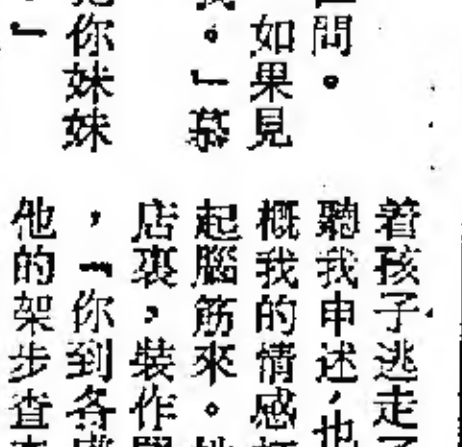 問。
如果見
。」慕
你妹妹
」
着孩子逃走
聽我申述,也
概我的情感
起腦筋來。
店裏,裝作
,「你到各
他的架步查